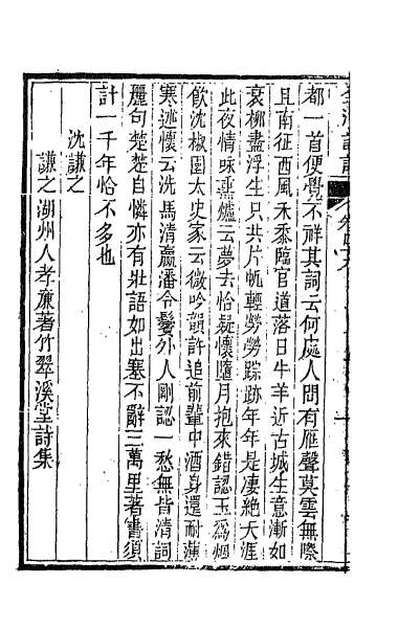 都一首便覺不祥其詞云何處人間有雁聲莫雲無際
且南征西風禾黍臨官道落日牛羊近古城生意漸如
衰柳盡浮生只共片帆輕勞勞踪跡年年是凄絕天涯
此夜情味熏爐云夢去恰疑懷隨月抱來錯認玉爲烟
飲沈椒園太史家云微吟韻許追前輩中酒身還耐薄
寒述懷云洗馬清羸潘令鬢外人剛認一愁無皆清詞
麗句楚楚自憐亦有壯語如出塞不辭三萬里著書須
計一千年恰不多也
沈謙之
謙之湖州人孝廉著竹翠溪堂詩集